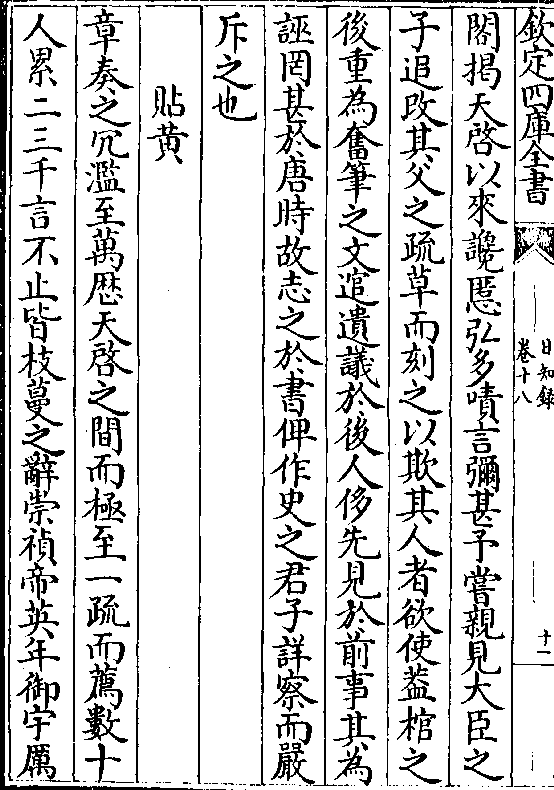 欽定四庫全書
日知錄
卷十八
十二
閣揭天啓以來讒慝弘多嘖言彌甚予嘗親見大臣之
子追改其父之疏草而刻之以欺其人者欲使葢棺之
後重為奮筆之文逭遺議於後人侈先見於前事其為
誣罔甚於唐時故志之於書俾作史之君子詳察而嚴
斥之也
貼黄
章奏之冗濫至萬厯天啓之間而極至一疏而薦數十
人累二三千言不止皆枝蔓之辭崇禎帝英年御宇厲